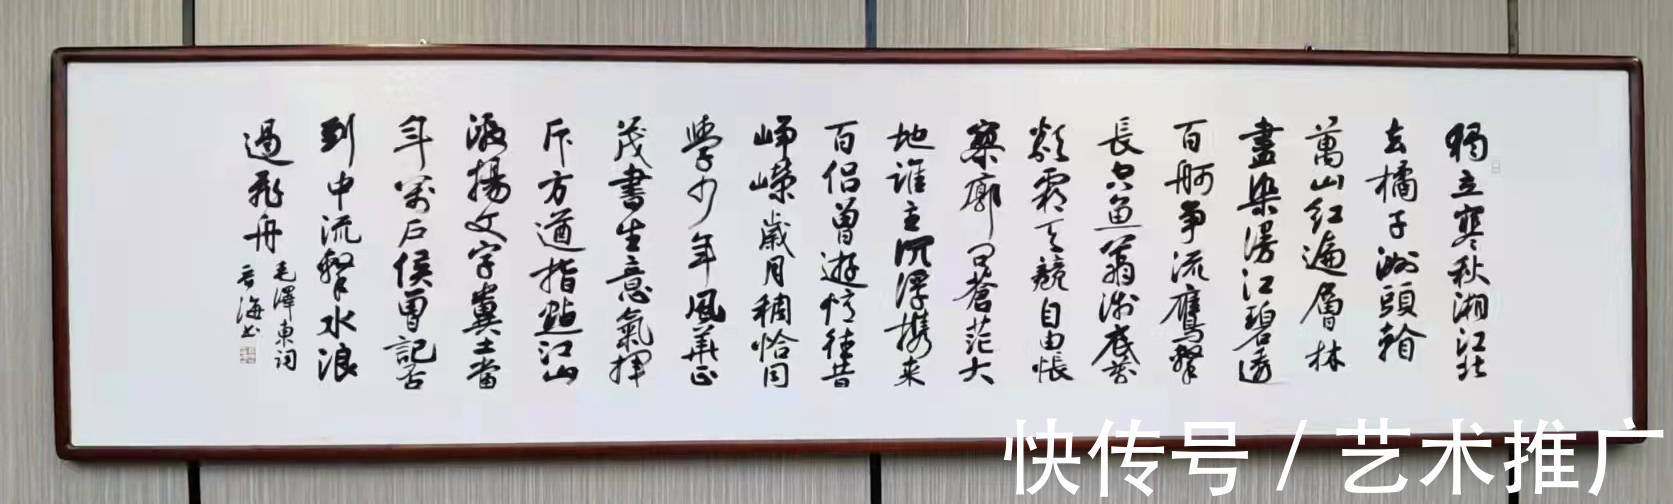 獨立寒秋湘江北
去橘子洲頭看
萬山红遍層林
盡染漫江碧透
百舸争流鷹擊
長空鱼翔浅底萬
類霜天競自由悵
寥廓问蒼茫大
地誰主沉浮携来
百侣曾遊忆往昔
峥嵘歲月稠恰同
學少年風華正
茂書生意氣揮
斥方遒指點江山
激揚文字糞土當
年萬户侯曾記否
到中流擊水浪
過飛舟
毛澤東词
海书
快传号 / 艺术推广